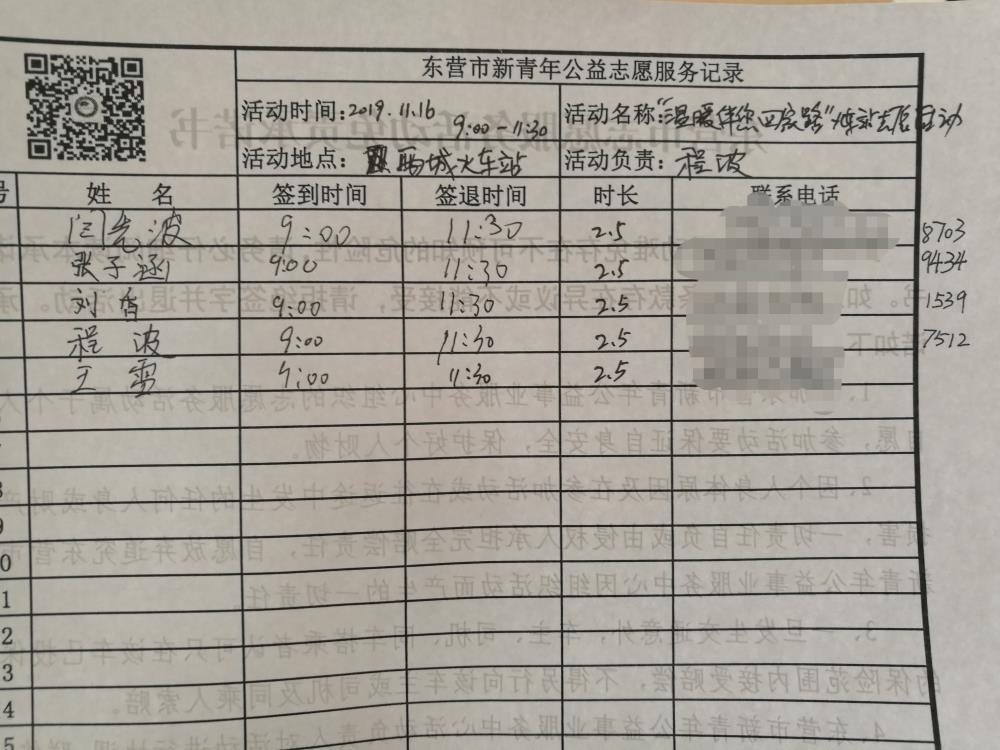 东营市新青年公益志愿服务记录
活动时间:2019.11.16 9:00-11:30 活动名称:"温暖伴您回家路"火车站志愿活动
活动地点: 西城火车站 活动负责: 程波
号 姓 名 签到时间 签退时间 时长 联系电话
闫先波 9:00 11:30 2.5 8703
张子涵 9:00 11:30 2.5 9434
刘香 9:00 11:30 2.5 1539
程 波 9:00 11:30 2.5 7512
王 雷 9:00 11:30 2.5
8
9
0
1
2
3
4
5